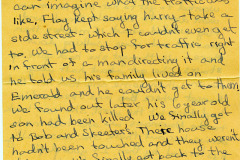 can imagine what the traffic was
like, Flay kept saying hurry - take a
side street - which I couldn't even get
to. We had to stop for traffic right
in front of a man directing it and
he told us his family lived on
Emerald and he couldn't get to them
We found out later his 6 year old
son had been killed. We finally got
to Bob and Skeeters. There house
hadn't been touched and they weren't
We finally got back to the